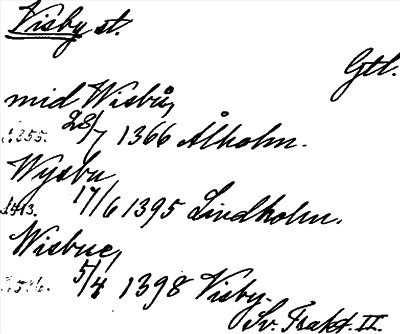 Visby st.
Gtl.
mid Wisbu,
28/7 1366 Ålholm.
Wysbu
17/6 1395 Lindholm.
Wisbue,
5/4 1398 Visby.
Sv. Trakt. II.